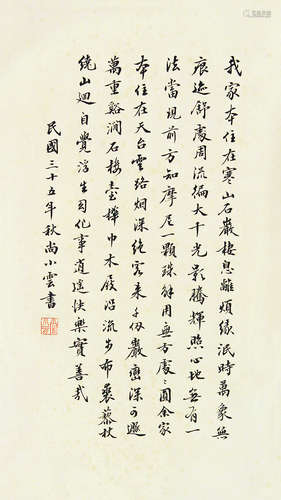 我家本住在寒山石巖棲息離煩緣泯時萬象無
痕迹舒處周流徧大千光影騰輝照心地無有一
法當現前方知摩尼一顆珠解用無方處〻圓余家
本住在天台雲路烟深絕客來千仞巖巒深可遯
萬重谿澗石樓臺樺巾木屐沿流步布裘藜杖
繞山迴自覺浮生幻化事逍遙快樂實善哉
民國三十五年秋尚小雲書